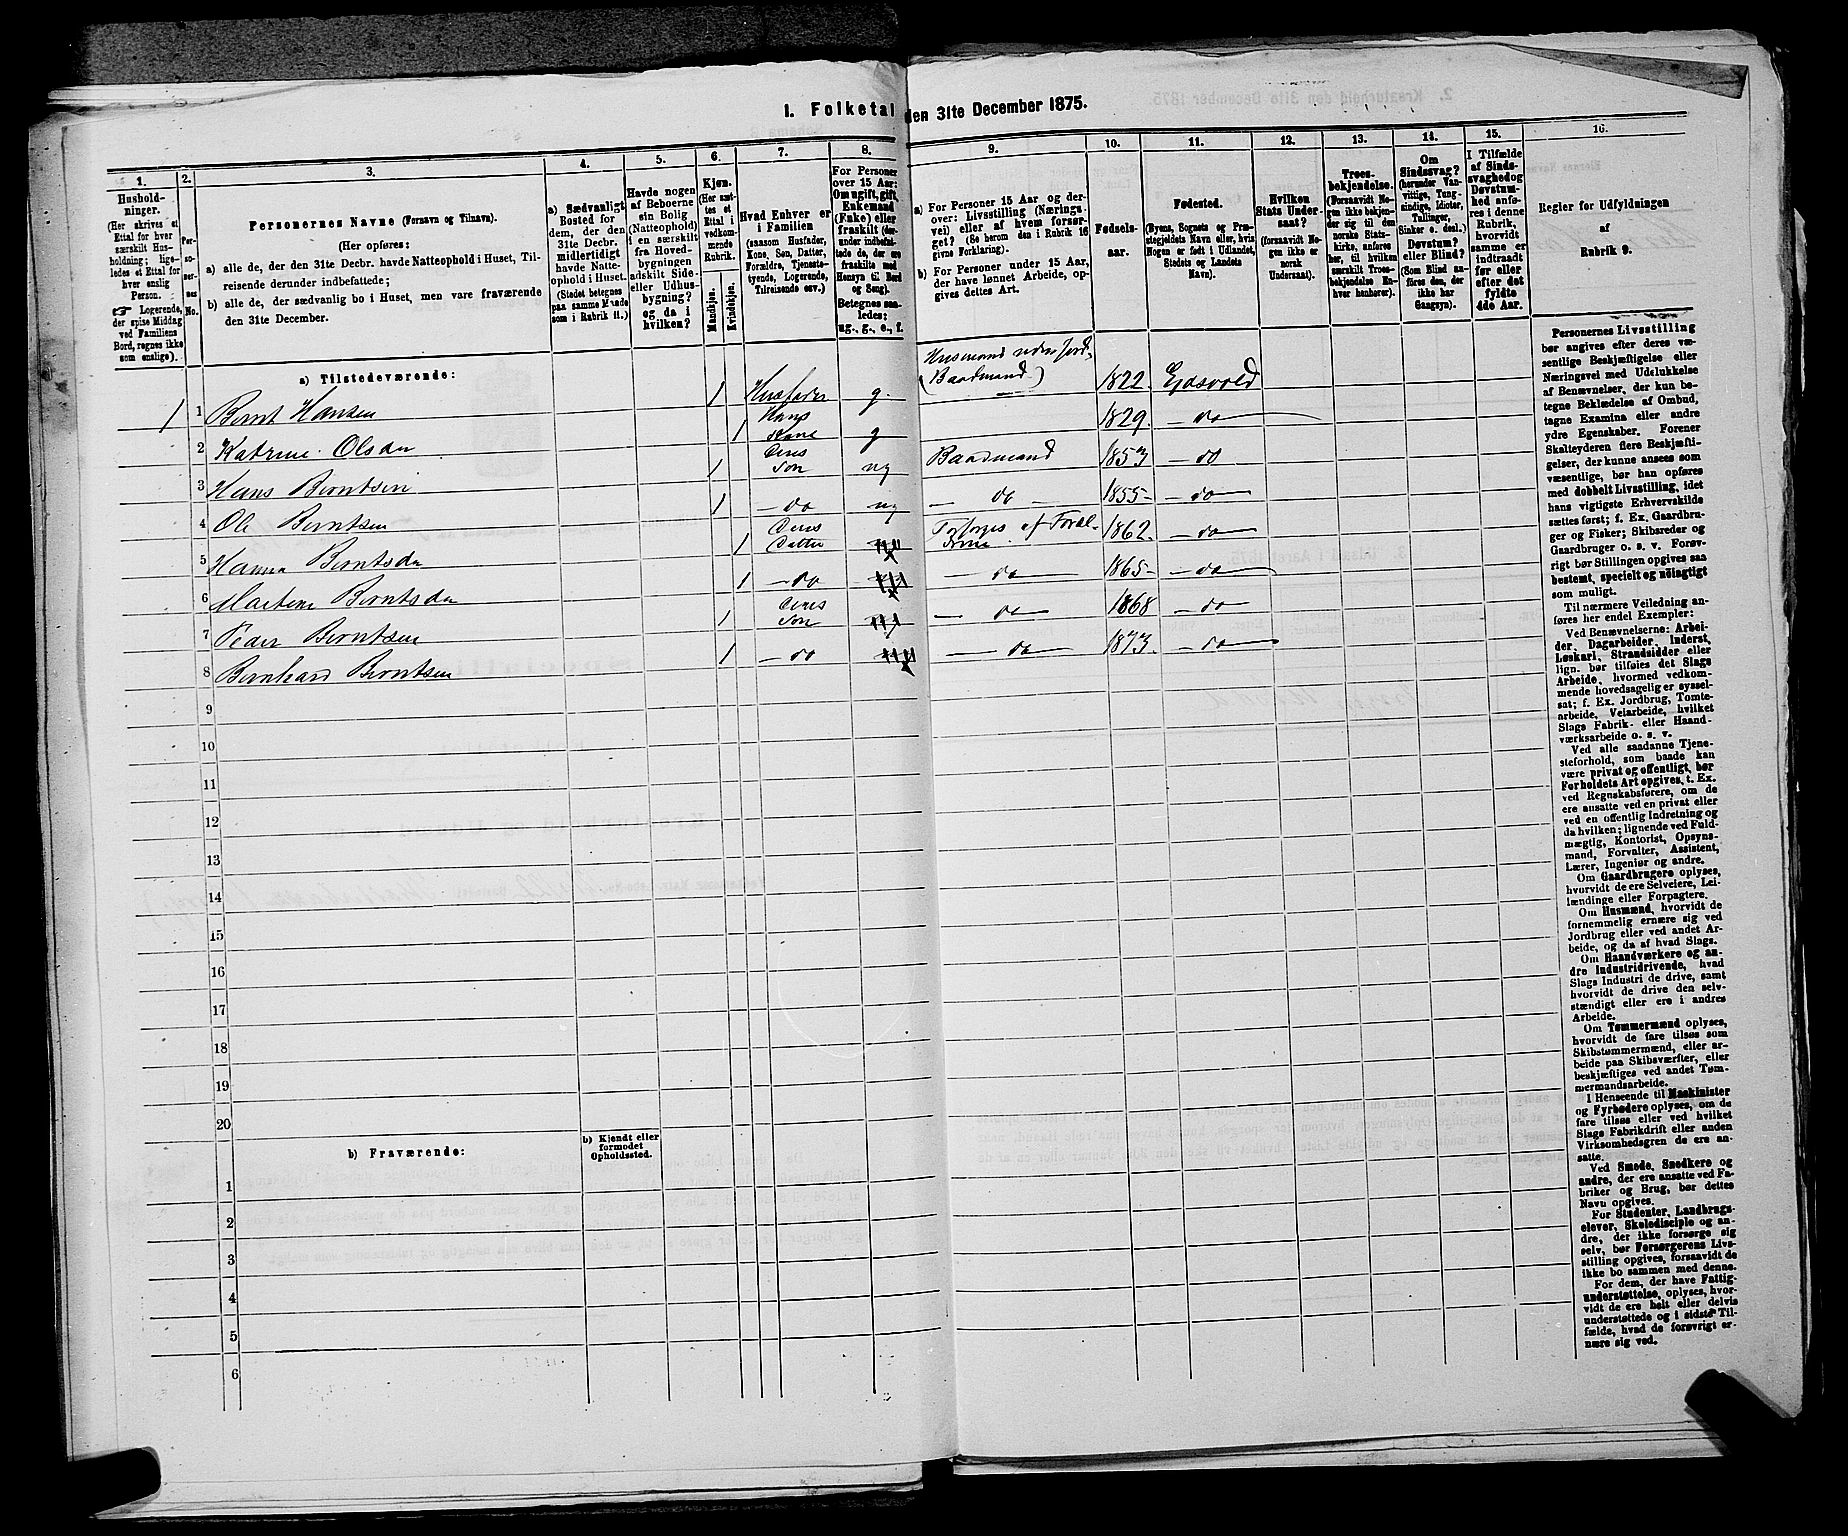 1. Folketal den 31te December 1875.
1.
2.
3.
4.
5.
6.
7.
8.
9.
10.
11.
12.
13.
14.
15.
16.
Hushold-
ninger.
(Her skrives et
Ettal for hver
særskilt Hus-
holdning; lige-
ledes et Ettal for
hver enslig
Person.
☞ Logerende,
der spise Middag
ved Familiens
Bord, regnes ikke
som enslige).
Per-
so-
ner-
nes
No.
Personernes Navne (Fornavn og Tilnavn).
(Her opføres:
a) alle de, der den 31te Decbr. havde Natteophold i Huset, Til-
reisende derunder indbefattede;
b) alle de, der sædvanlig bo i Huset, men vare fraværende
den 31te December.
a) Sædvanligt
Bosted for
dem, der den
31te Decbr.
midlertidigt
havde Natte-
ophold i Huset.
(Stedet betegnes
paa samme Maade
som i Rubrik 11.)
Havde nogen
af Beboerne
sin Bolig
(Natteophold)
i en særskilt
fra Hoved-
bygningen
adskilt Side-
eller Udhus-
bygning? og da i
hvilken?
Kjøn.
(Her sæt-
tes et
Ettal i
vedkom-
mende
Rubrik.
Mandkjøn.
Kvindekjøn.
Hvad Enhver er
i Familien
(saasom Husfader,
Kone, Søn, Datter,
Forældre, Tjeneste-
tyende, Logerende,
Tilreisende osv.)
For Personer
over 15 Aar:
Om ugift, gift,
Enkemand
(Enke) eller
fraskilt (der-
under indbefat-
tede de, der ere
fraskilte med
Hensyn til Bord
og Seng).
Betegnes saa-
ledes:
ug., g., e., f.
a) For Personer 15 Aar og der-
over: Livsstilling (Nærings-
vei) eller af hvem forsør-
get? (Se herom den i Rubrik 16
givne Forklaring).
b) For Personer under 15 Aar,
der have lønnet Arbeide, op-
gives dettes Art.
Fødsels-
aar.
Fødested.
(Byens, Sognets og Præ-
stegjeldets Navn eller, hvis
Nogen er født i Udlandet,
Stedets og Landets
Navn).
Hvilken
Stats Under-
saat?
(forsaavidt No-
gen ikke er
norsk
Undersaat).
Troes-
bekjendelse.
(Forsaavidt No-
gen ikke bekjen-
der sig til den
norske Stats-
kirke, anføres
her, til hvilken
særskilt Troes-
bekjendelse En-
hver henhører).
Om
Sindssvag?
(herunder Van-
vittige, Tung-
sindige, Idioter,
Tullinger,
Sinker o. desl.)
Døvstum?
eller Blind?
(Som Blind an-
føres den, der
ikke har
Gangsyn).
I Tilfælde
af Sinds-
svaghed og
Døvstum-
hed anfø-
res i denne
Rubrik,
hvorvidt
samme er
indtraadt
før eller
efter det
fyldte
4de Aar.
Regler for Udfyldningen
af
Rubrik 9.
a) Tilstedeværende:
1 1 Bernt Hansen 1 Husfader g. Husmand uden Jord, (Baadmand) 1822. Ejdsvold
2 Katrine Olsdtr 1 Hans Kone g 1829. – do
3 Hans Berntsen 1 Deres Søn ug Baadmand 1853 – do
4 Ole Berntsen 1 – do ug – do – 1855 – do
5 Hanna Berntsdtr 1 Deres Datter Forsørges af Foræl- drene 1862. – do
6 Berntsdtr 1 – do – do 1865 – do
7 Peder Berntsen 1 Deres Søn – do 1868 – do
8 Bernhard Berntsen 1 – do – do 1873. – do
9
10
11
12
13
14
15
16
17
18
19
20
b) Fraværende:
b) Kjendt eller
formodet
Opholdssted.
1
2
3
4
5
6
Personernes Livsstilling
bør angives efter deres væ-
sentlige Beskjæftigelse eller
Næringsvei med Udelukkelse
af Benævnelser, der kun be-
tegne Beklædelse af Ombud,
tagne Examina eller andre
ydre Egenskaber. Forener
Skatteyderen flere Beskjæfti-
gelser, der kunne ansees som
væsentlige, bør han opføres
med dobbelt Livsstilling, idet
hans vigtigste Erhvervskilde
sættes først; f. Ex. Gaardbru-
ger og Fisker; Skibsreder og
Gaardbruger o. s. v. Forøv-
rigt bør Stillingen opgives saa
bestemt, specielt og nøiagtigt
som muligt.
Til nærmere Veiledning an-
føres her endel Exempler:
Ved Benævnelserne: Arbei-
der, Dagarbeider, Inderst,
Løskarl, Strandsidder eller
lign. bør tilføies det Slags
Arbeide, hvormed vedkom-
mende hovedsagelig er syssel-
sat; f. Ex. Jordbrug, Tomte-
arbeide, Veiarbeide, hvilket
Slags Fabrik- eller Haand-
værksarbeide o. s. v.
Ved alle saadanne Tjene-
steforhold, som baade kan
være privat og offentligt, bør
Forholdets Art opgives, t. Ex.
ved Regnskabsførere, om de
ere ansatte ved en privat eller
ved en offentlig Indretning og
da hvilken; lignende ved Fuld-
mægtig, Kontorist, Opsyns-
mand, Forvalter, Assistent,
Lærer, Ingeniør og andre.
Om Gaardbrugere oplyses,
hvorvidt de ere Selveiere, Lei-
lændinge eller Forpagtere.
Om Husmænd, hvorvidt de
fornemmelig ernære sig ved
Jordbrug eller ved andet Ar-
beide, og da af hvad Slags.
Om Haandværkere og an-
dre Industridrivende, hvad
Slags Industri de drive, samt
hvorvidt de drive den selv-
stændigt eller ere i andres
Arbeide.
Om Tømmermænd oplyses,
hvorvidt de fare tilsøs som
Skibstømmermænd, eller ar-
beide paa Skibsværfter, eller
beskjæftiges ved andet Tøm-
mermandsarbeide.
I Henseende til Maskinister
og Fyrbødere oplyses, om de
fare tilsøs eller ved hvilket
Slags Fabrikdrift eller anden
Virksomhedsgren de ere an-
satte.
Ved Smede, Snedkere og
andre, der ere ansatte ved Fa-
briker og Brug, bør dettes
Navn opgives.
For Studenter, Landbrugs-
elever, Skoledisciple og an-
dre, der ikke forsørge sig
selv, bør Forsørgerens Livs-
stilling opgives, forsaavidt de
ikke bo sammen med denne.
For dem, der have Fattig-
understøttelse, oplyses, hvor-
vidt de ere helt eller delvis
understøttede og i sidste Til-
fælde, hvad de forøvrigt er-
nære sig ved.